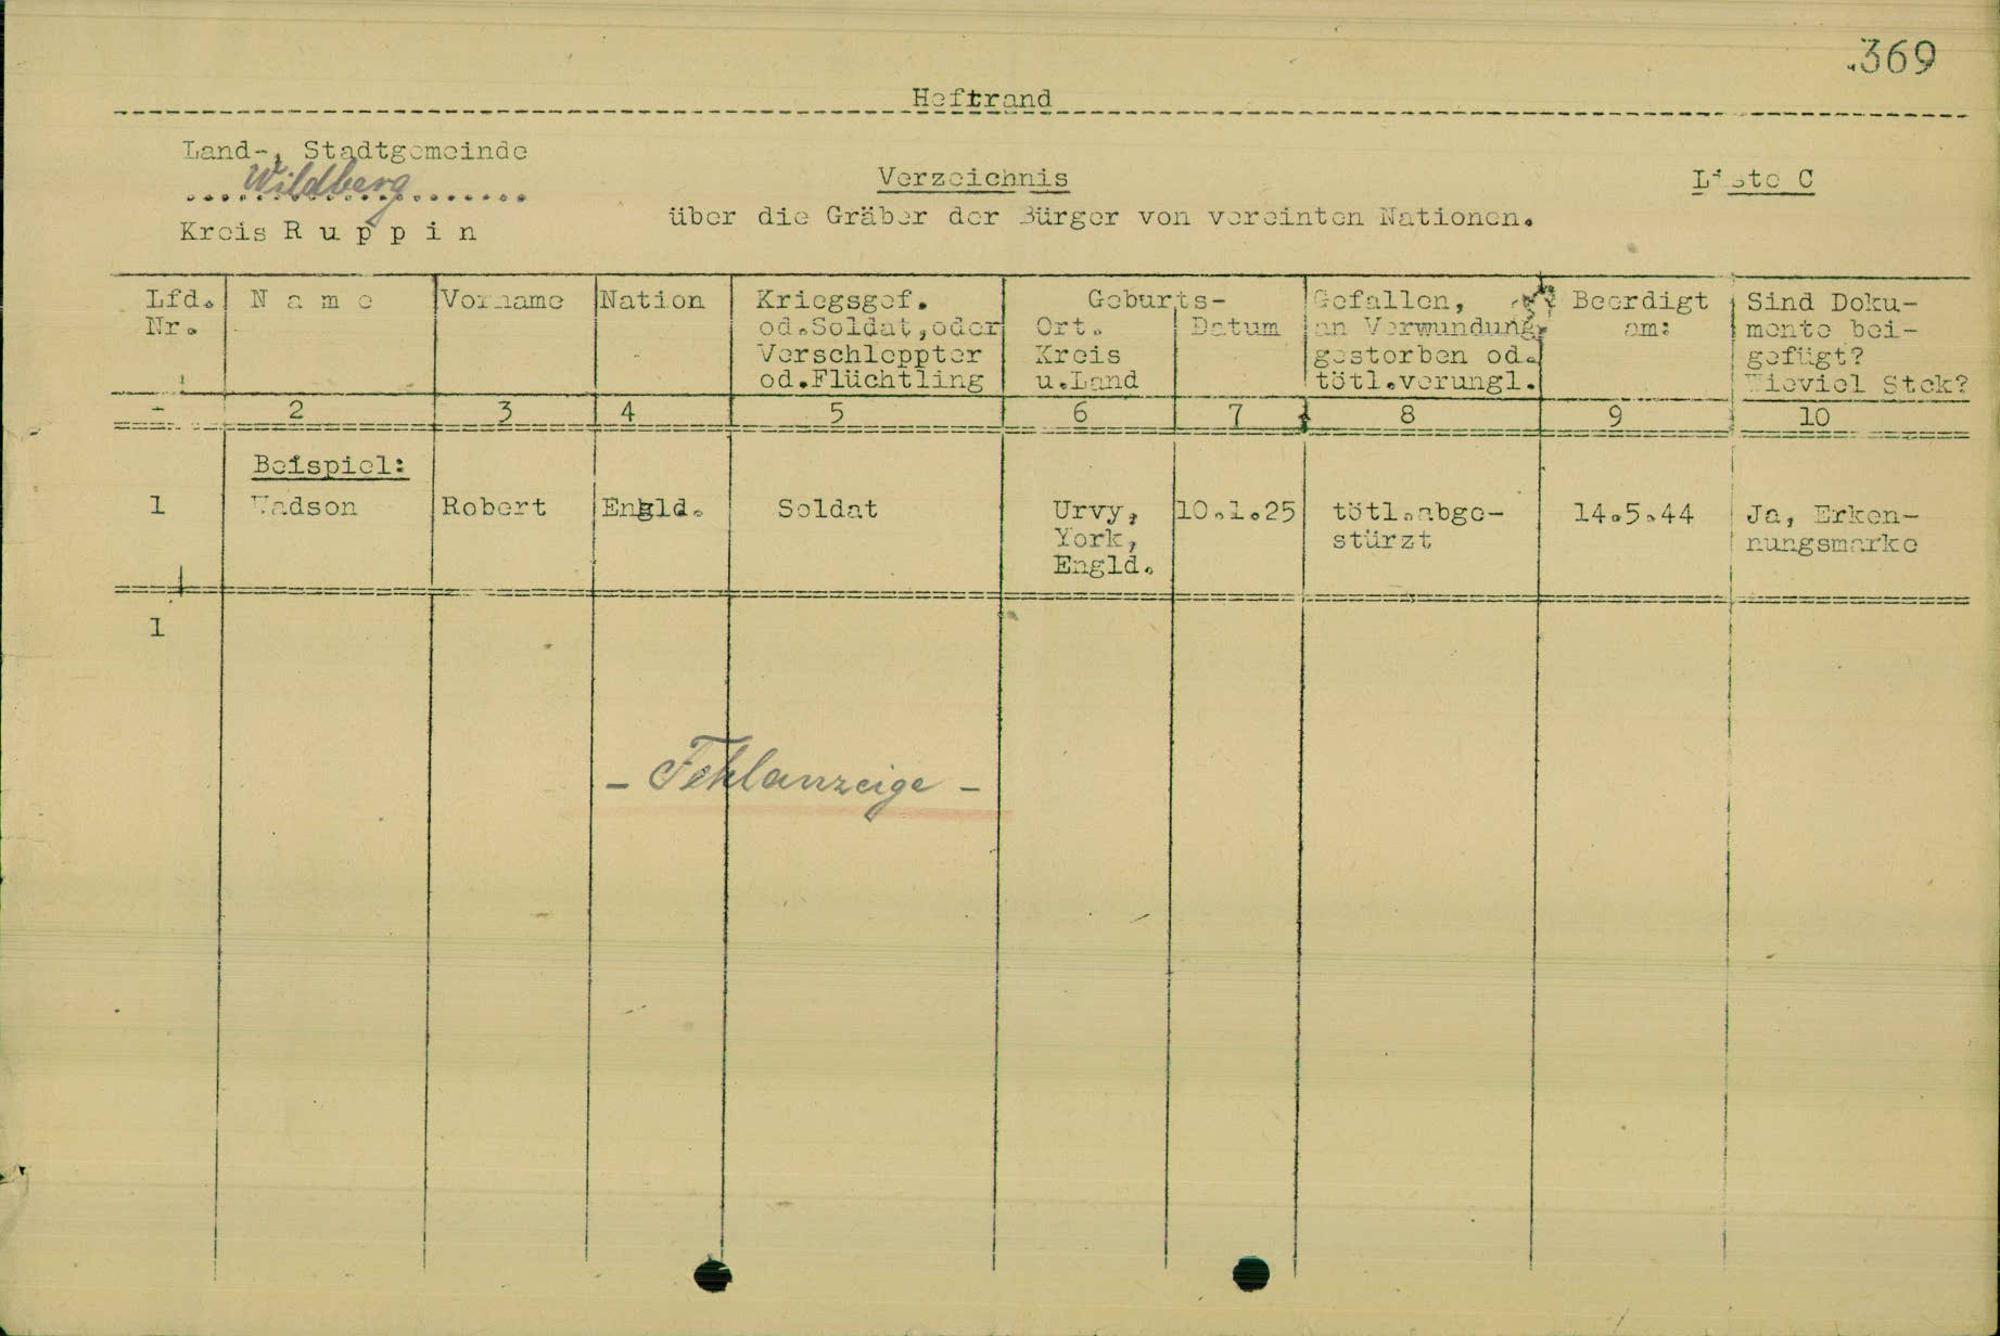 369
Heftrand
Land-, Stadtgemeinde
Wildberg
Kreis R u p p i n
Verzeichnis
Liste C
über die Gräber der Bürger von vereinten Nationen.
Lfd. Nr.
N a m e
Vorname
Nation
Kriegsgef.
od.Soldat,oder
Verschleppter
od.Flüchtling
Geburts-
Ort.
Kreis
u.Land
Datum
Gefallen,
an Verwundung
gestorben od.
tötl.verungl.
Beerdigt
am:
Sind Doku-
mente bei-
gefügt?
Wieviel Stck?
- 2 3 4 5 6 7 8 9 10
Beispiel:
1 Wadson Robert Engld. Soldat Urvy, 10.1.25 tötl.abge- 14.5.44 Ja, Erken-
York, stürzt nungsmarke
Engld.
1
- Fehlanzeige -